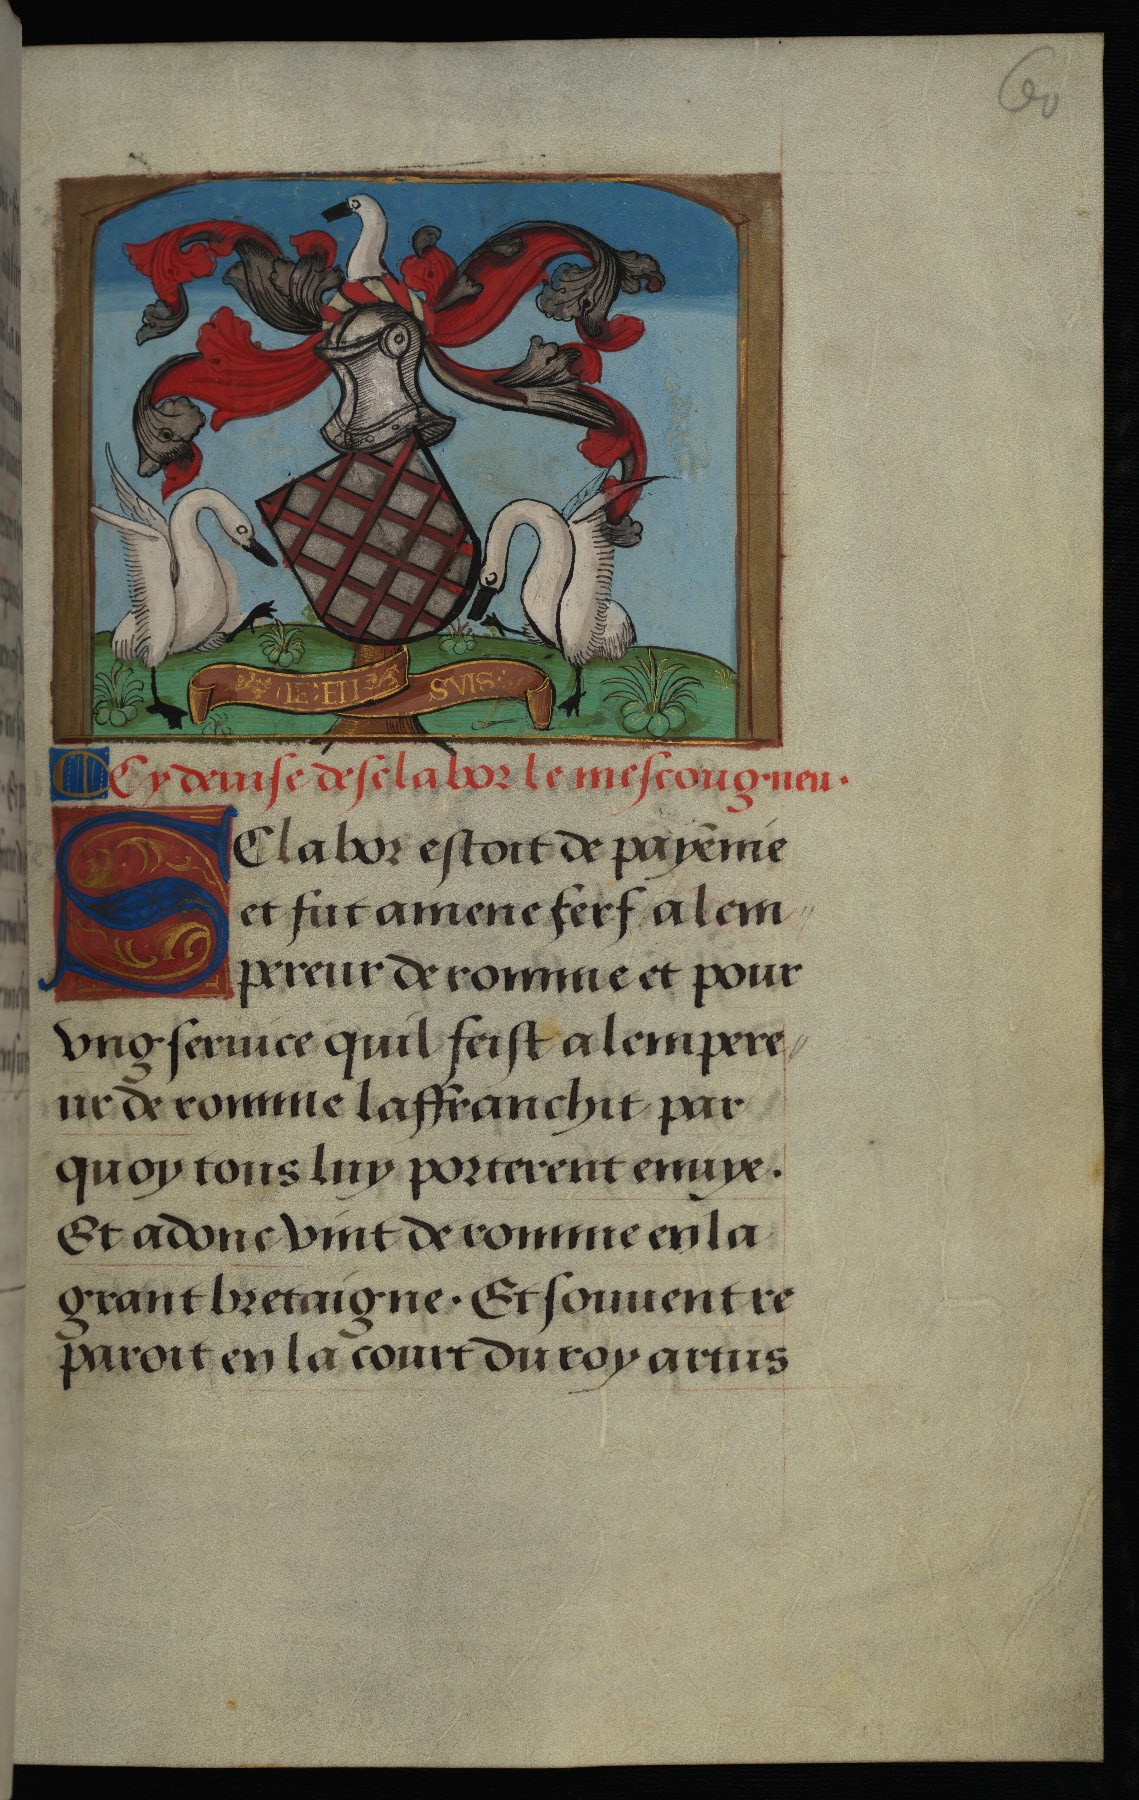 60
IE EN SVIS
Cy deuise de selabor le mescougneu.
SElabor estoit de payēnie
et fut amene serf a lem
pereur de romme et pour
vng seruice quil feist a lempere
ur de romme laffranchit par
quoy tous luy porterent enuye.
Et adonc vint de romme en la
grant bretaigne. Et souuent re
paroit en la court du roy artus